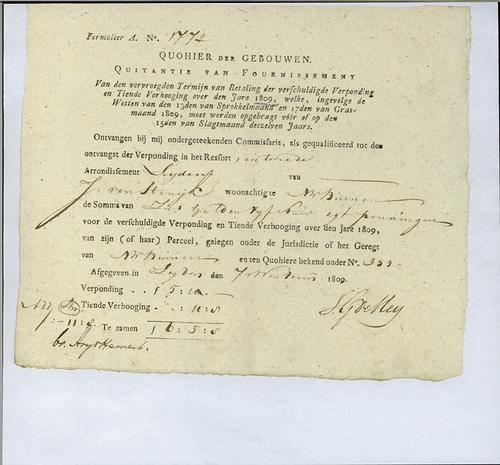 Formulier A. No. 1772
QUOHIER DER GEBOUWEN.
QUITANTIE VAN FOURNISSEMENT
Van den vervroegden Termijn van Betaling der verschuldigde Verponding
en Tiende Verhooging over den Jare 1809, welke, ingevolge de
Wetten van den 13den van Sprokkelmaand en 17den van Gras-
maand 1809, moet worden opgebragt vóór of op den
15den van Slagtmaand deszelven Jaars.
Ontvangen bij mij ondergeteekenden Commissaris, als gequalificeerd tot den
ontvangst der Verponding in het Ressort, tweede
Arrondissement Leyden van
J. van woonachtig te
de Somma van Zes Gulden vyf agt penningen
voor de verschuldigde Verponding en Tiende Verhooging over den Jare 1809,
van zijn (of haar) Perceel, gelegen onder de Jurisdictie of het Geregt
van en ten Quohiere bekend onder No. 333
Afgegeven in Leyden den 1809.
Verponding
Tiende Verhooging - : 11 : 8
: - 11 : 8
Te zamen 6 : 5 : 8